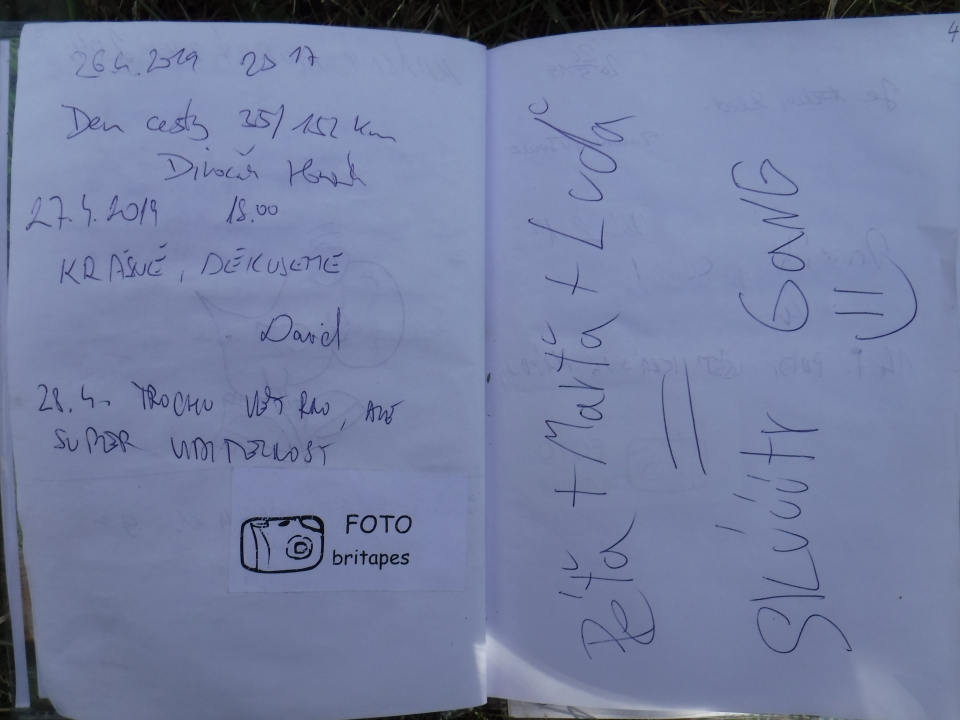 26.4.2019 20 17
Den cesty 35/152 Km
Divočák
27.4.2019 18.00
KRÁSNÉ, DĚKUJEME
David
28.4. TROCHU VĚTRNO, ALE
SUPER VIDITELNOST
FOTO
britapes
4
Péťa + Marťa + Luďa
=
GANG